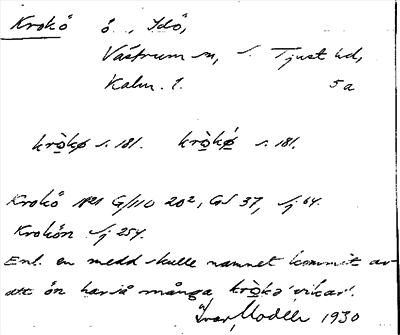 Krokö ö., Idö,
Västrum sn, s. Tjust hd,
Kalm. l. 5a
kròkø s. 181. kròkǿ s. 181.
Krokö N21 G/110 20², GS 37, fj 64.
Krokön fj 254.
Enl. en medd skulle namnet kommit av
att ön har så många kròka 'vikar'.
Ivar Modéer 1930